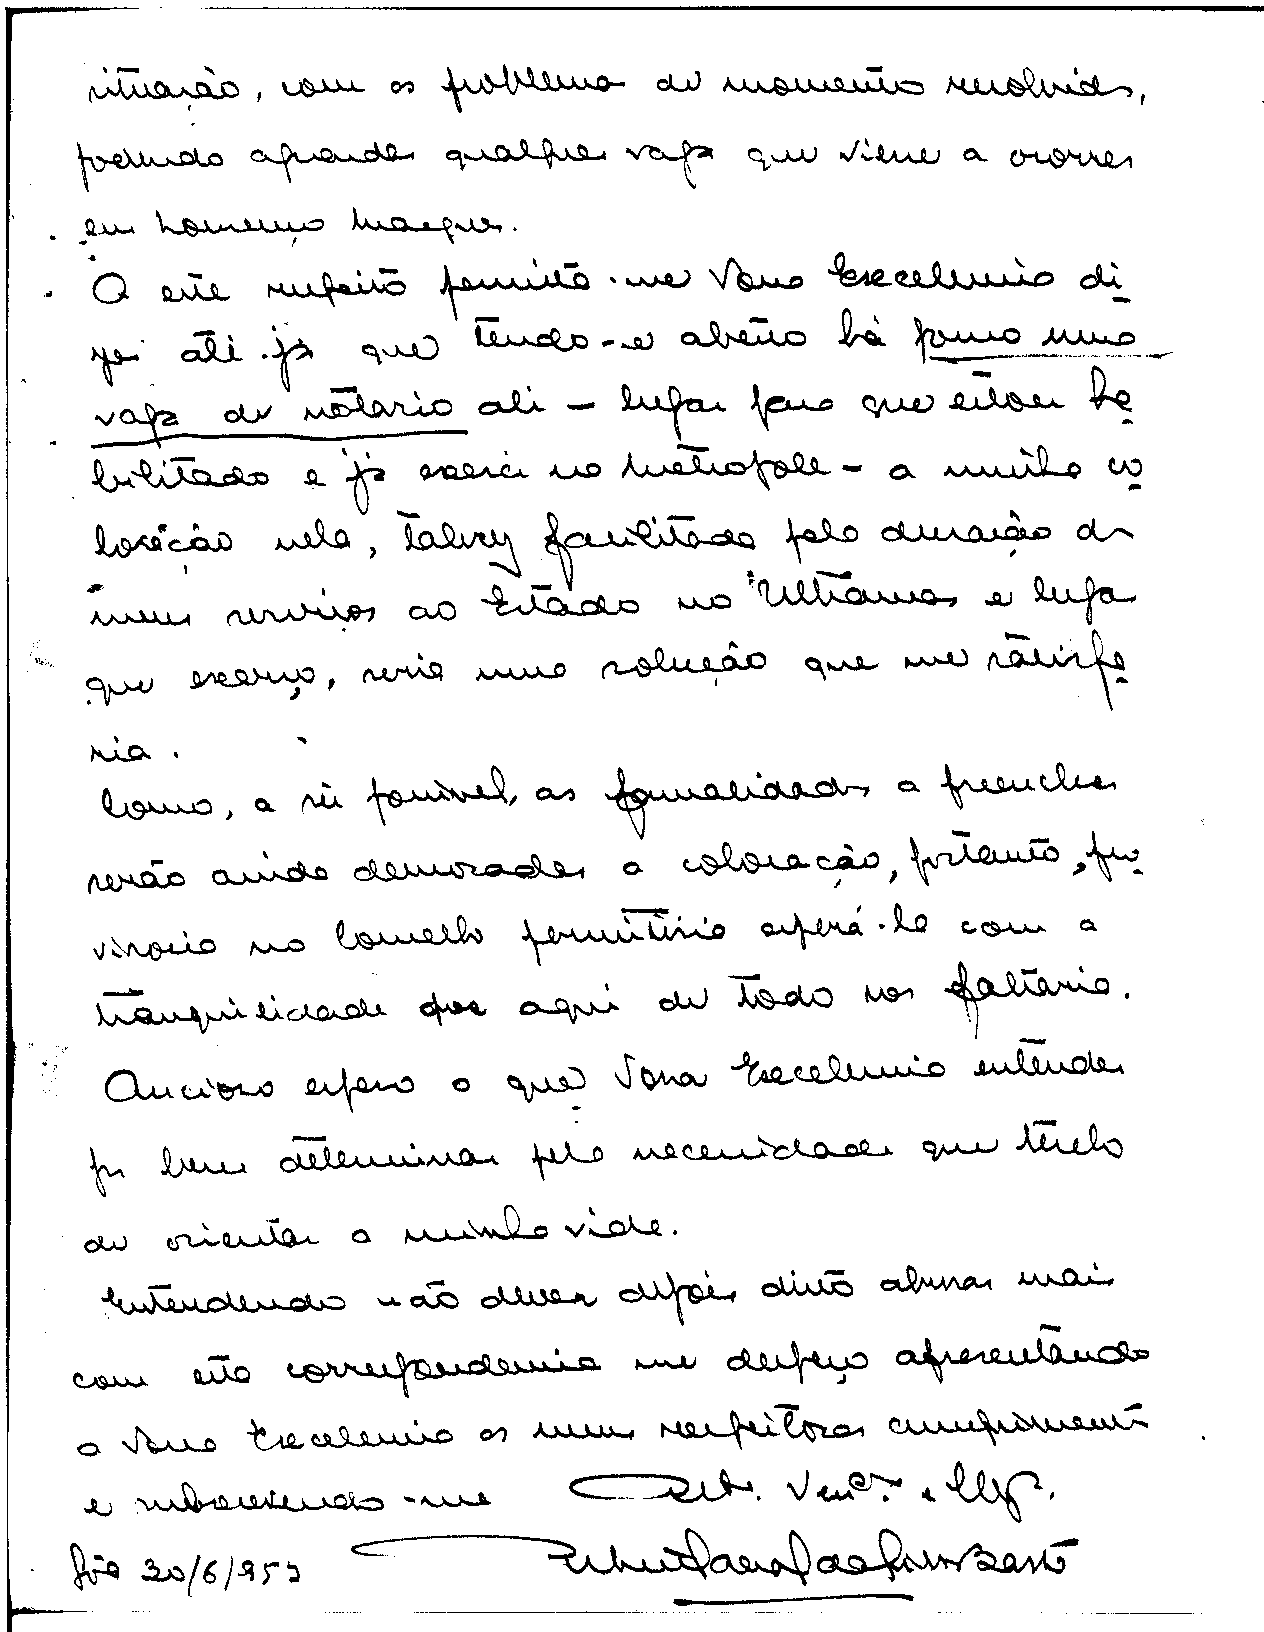 situação, com os problemas do momento resolvidos,
podendo aguardar qualquer vaga que viesse a ocorrer
em Lourenço Marques.
A este respeito permita-me Vossa Excelencia di
zer até já que tendo-se aberto há pouco uma
vaga de notário ali - lugar para que estou ha
bilitado e já exerci na Metrópole - a minha co
locação nela, talvez facilitada pela duração dos
meus serviços ao Estado no Ultramar e lugar
que exerço, seria uma solução que me satisfa
ria.
Como, a ser possivel, as formalidades a preencher
serão ainda demoradas a colocação, portanto, pro
visoria no Concelho permitiria esperá-la com a
tranquilidade que aqui de todo nos faltaria.
Ancioso espero o que Vossa Excelencia entender
por bem determinar pela necessidade que tenho
de orientar a minha vida.
Entendendo não dever depois disto abusar mais
com esta correspondencia me despeço apresentando
a Vossa Excelencia os meus respeitosos cumprimentos
e subscrevendo-me
Goa 20/6/957